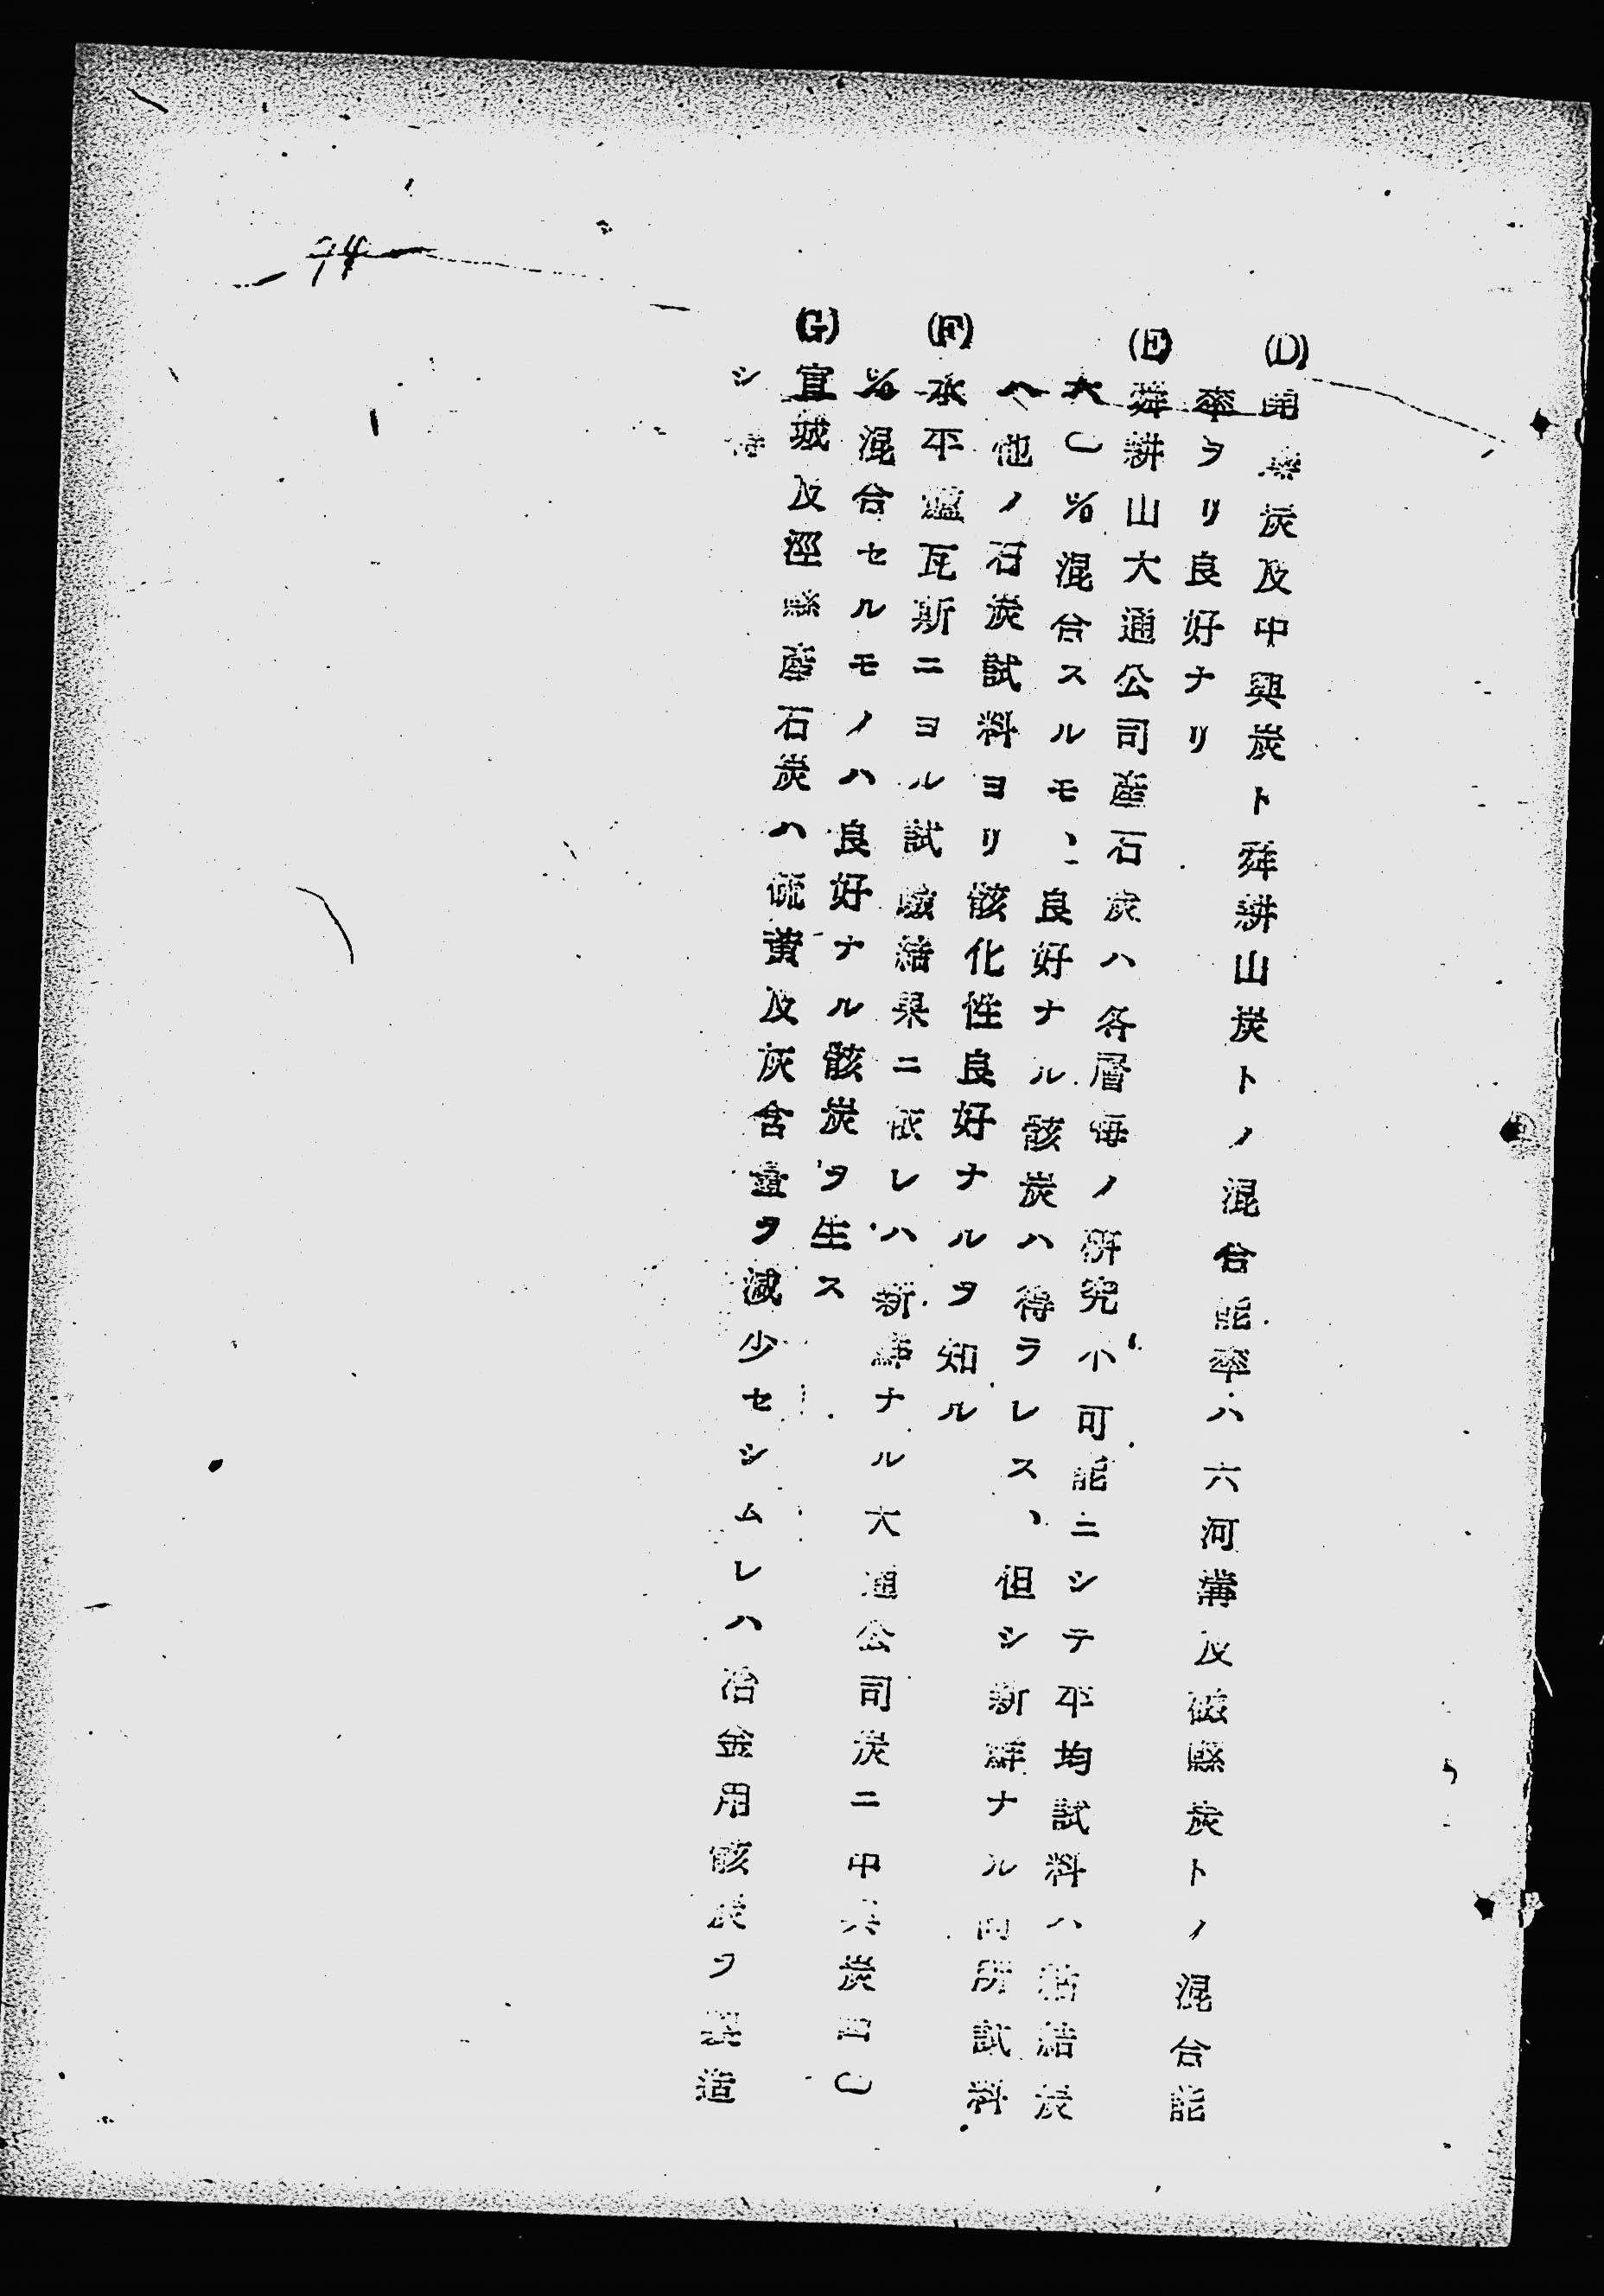 74
(D) 開灤炭及中興炭ト舜耕山炭トノ混合能率ハ六河溝及磁縣炭トノ混合能
率ヨリ良好ナリ
(E) 舜耕山大通公司産石炭ハ各層毎ノ研究不可能ニシテ平均試料ハ粘結炭
六〇%混合スルモ、良好ナル骸炭ハ得ラレス、但シ新鮮ナル同所試料
ハ他ノ石炭試料ヨリ骸化性良好ナルヲ知ル
(F) 水平爐瓦斯ニヨル試驗結果ニ依レハ新鮮ナル大通公司炭ニ中興炭四〇
%混合セルモノハ良好ナル骸炭ヲ生ス
(G) 宣城及涇縣産石炭ハ硫黄及灰含量ヲ減少セシムレハ冶金用骸炭ヲ製造
シ得